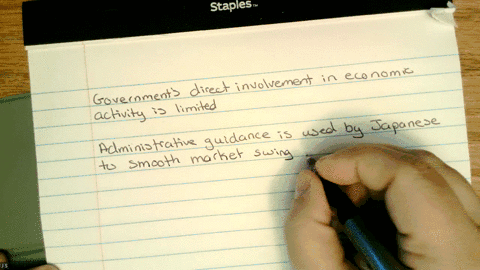 Staples™
Government's direct involvement in economic
activity is limited
Administrative guidance is used by Japanese
to smooth market swing